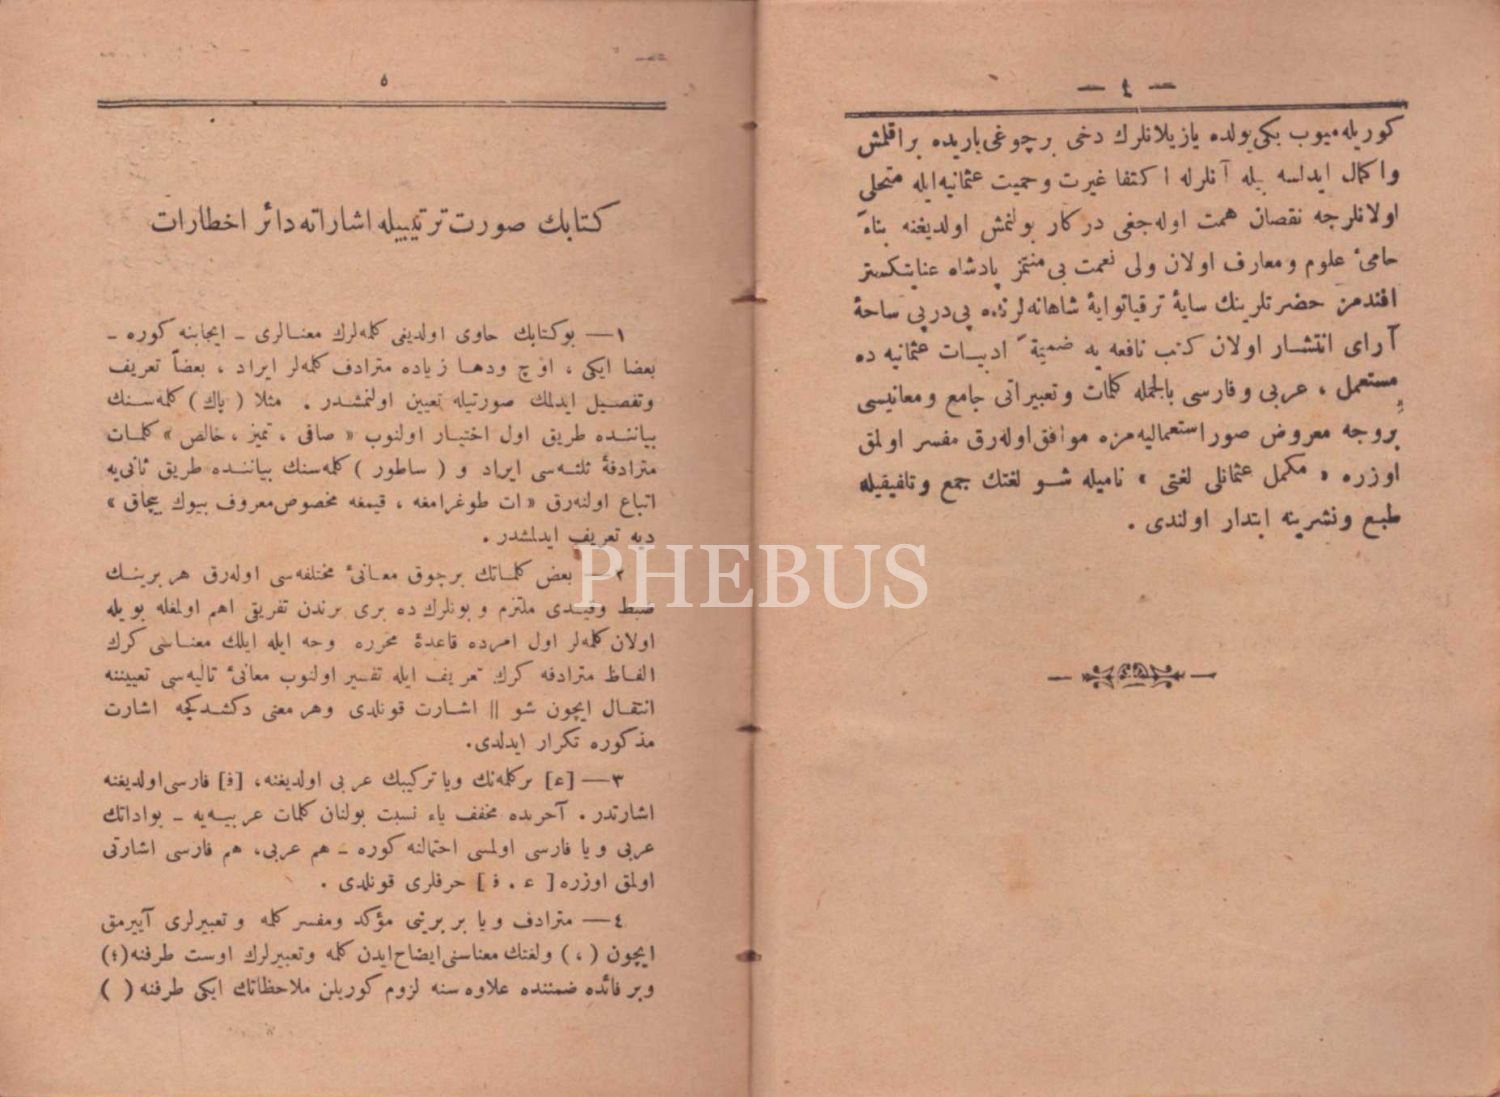 — ٤ —
كوريله ميوب يكى يولده يازيلانلرك دخى برچوغى ياريده براقلمش
واكمال ايدلسه بيله آنلرله اكتفا غيرت وحميت عثمانيه ايله متحلى
اولانلرجه نقصان همت اوله جغى دركار بولنمش اولديغنه بناءً
حامئ علوم ومعارف اولان ولى نعمت بى منتمز پادشاه عنايتكستر
افندمز حضرتلرينك سايهٔ ترقياتوايهٔ شاهانه لرنده پى درپى ساحهٔ
آراى انتشار اولان كتب نافعه يه ضميمةً ادبيات عثمانيه ده
مستعمل ، عربى وفارسى بالجمله كلمات وتعبيراتى جامع ومعانيسى
بروجه معروض صور استعماليه مزه موافق اوله رق مفسر اولمق
اوزره « مكمل عثمانلى لغتى » ناميله شو لغتك جمع وتلفيقيله
طبع ونشرينه ابتدار اولندى .
٥
كتابك صورت ترتيبيله اشاراته دائر اخطارات
١ — بوكتابك حاوى اولديغى كلمه لرك معنالرى ـ ايجابنه كوره ـ
بعضا ايكى ، اوچ ودها زياده مترادف كلمه لر ايراد ، بعضاً تعريف
وتفصيل ايدلمك صورتيله تعيين اولنمشدر . مثلا ( پاك ) كلمه سنك
بياننده طريق اول اختيار اولنوب « صافى ، تميز ، خالص » كلمات
مترادفهٔ ثلثه سى ايراد و ( ساطور ) كلمه سنك بياننده طريق ثانى يه
اتباع اولنه رق « ات طوغرامغه ، قيمغه مخصوص معروف بيوك بيچاق »
ديه تعريف ايدلمشدر .
٢ — بعض كلماتك برچوق معانئ مختلفه سى اوله رق هر برينك
ضبط وقيدى ملتزم و بونلرك ده برى برندن تفريقى اهم اولمغله بويله
اولان كلمه لر اول امرده قاعدهٔ محرره وجه ايله ايلك معناسى كرك
الفاظ مترادفه كرك تعريف ايله تفسير اولنوب معانئ تاليه سى تعييننه
انتقال ايچون شو || اشارت قونلدى وهر معنى دكشدكجه اشارت
مذكوره تكرار ايدلدى.
٣ — [ع] بركلمه نك ويا تركيبك عربى اولديغنه، [ف] فارسى اولديغنه
اشارتدر . آخرنده مخفف ياء نسبت بولنان كلمات عربيه يه ـ بواداتك
عربى ويا فارسى اولمسى احتمالنه كوره ـ هم عربى، هم فارسى اشارتى
اولمق اوزره [ ع . ف ] حرفلرى قونلدى .
٤ — مترادف ويا بر برينى مؤكد ومفسر كلمه وتعبيرلرى آييرمق
ايچون ( ، ) ولغتك معناسنى ايضاح ايدن كلمه وتعبيرلرك اوست طرفنه (؛)
وبر فائده ضمننده علاوه سنه لزوم كوريلن ملاحظاتك ايكى طرفنه ( )
PHEBUS